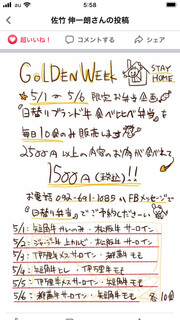 au 5:58
佐竹 伸一朗さんの投稿
超いいね！ コメントする シェア
GOLDEN WEEK
STAY HOME
5/1から5/6 限定お弁当企画
日替りブランド牛食べ比べ弁当を
毎日10食のみ販売します
2500円以上の内容のお肉が食べれて
1500円(税込)!!
お電話 092-631-1089 or FBメッセージで
「日替り弁当」でご予約ください
5/1: 短角牛カレのみ・松阪牛サーロイン
5/2: ジャージー牛上カルビ・松阪牛サーロイン
5/3: 伊万里メスサーロイン・飛騨牛モモ
5/4: 短角牛ヒレ・伊万里モモ
5/5: 伊万里メスサーロイン・短角牛モモ
5/6: 飛騨牛サーロイン・短角牛モモ
各10食